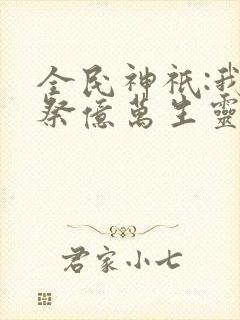 全民神祇:我
祭億萬生靈
君家小七